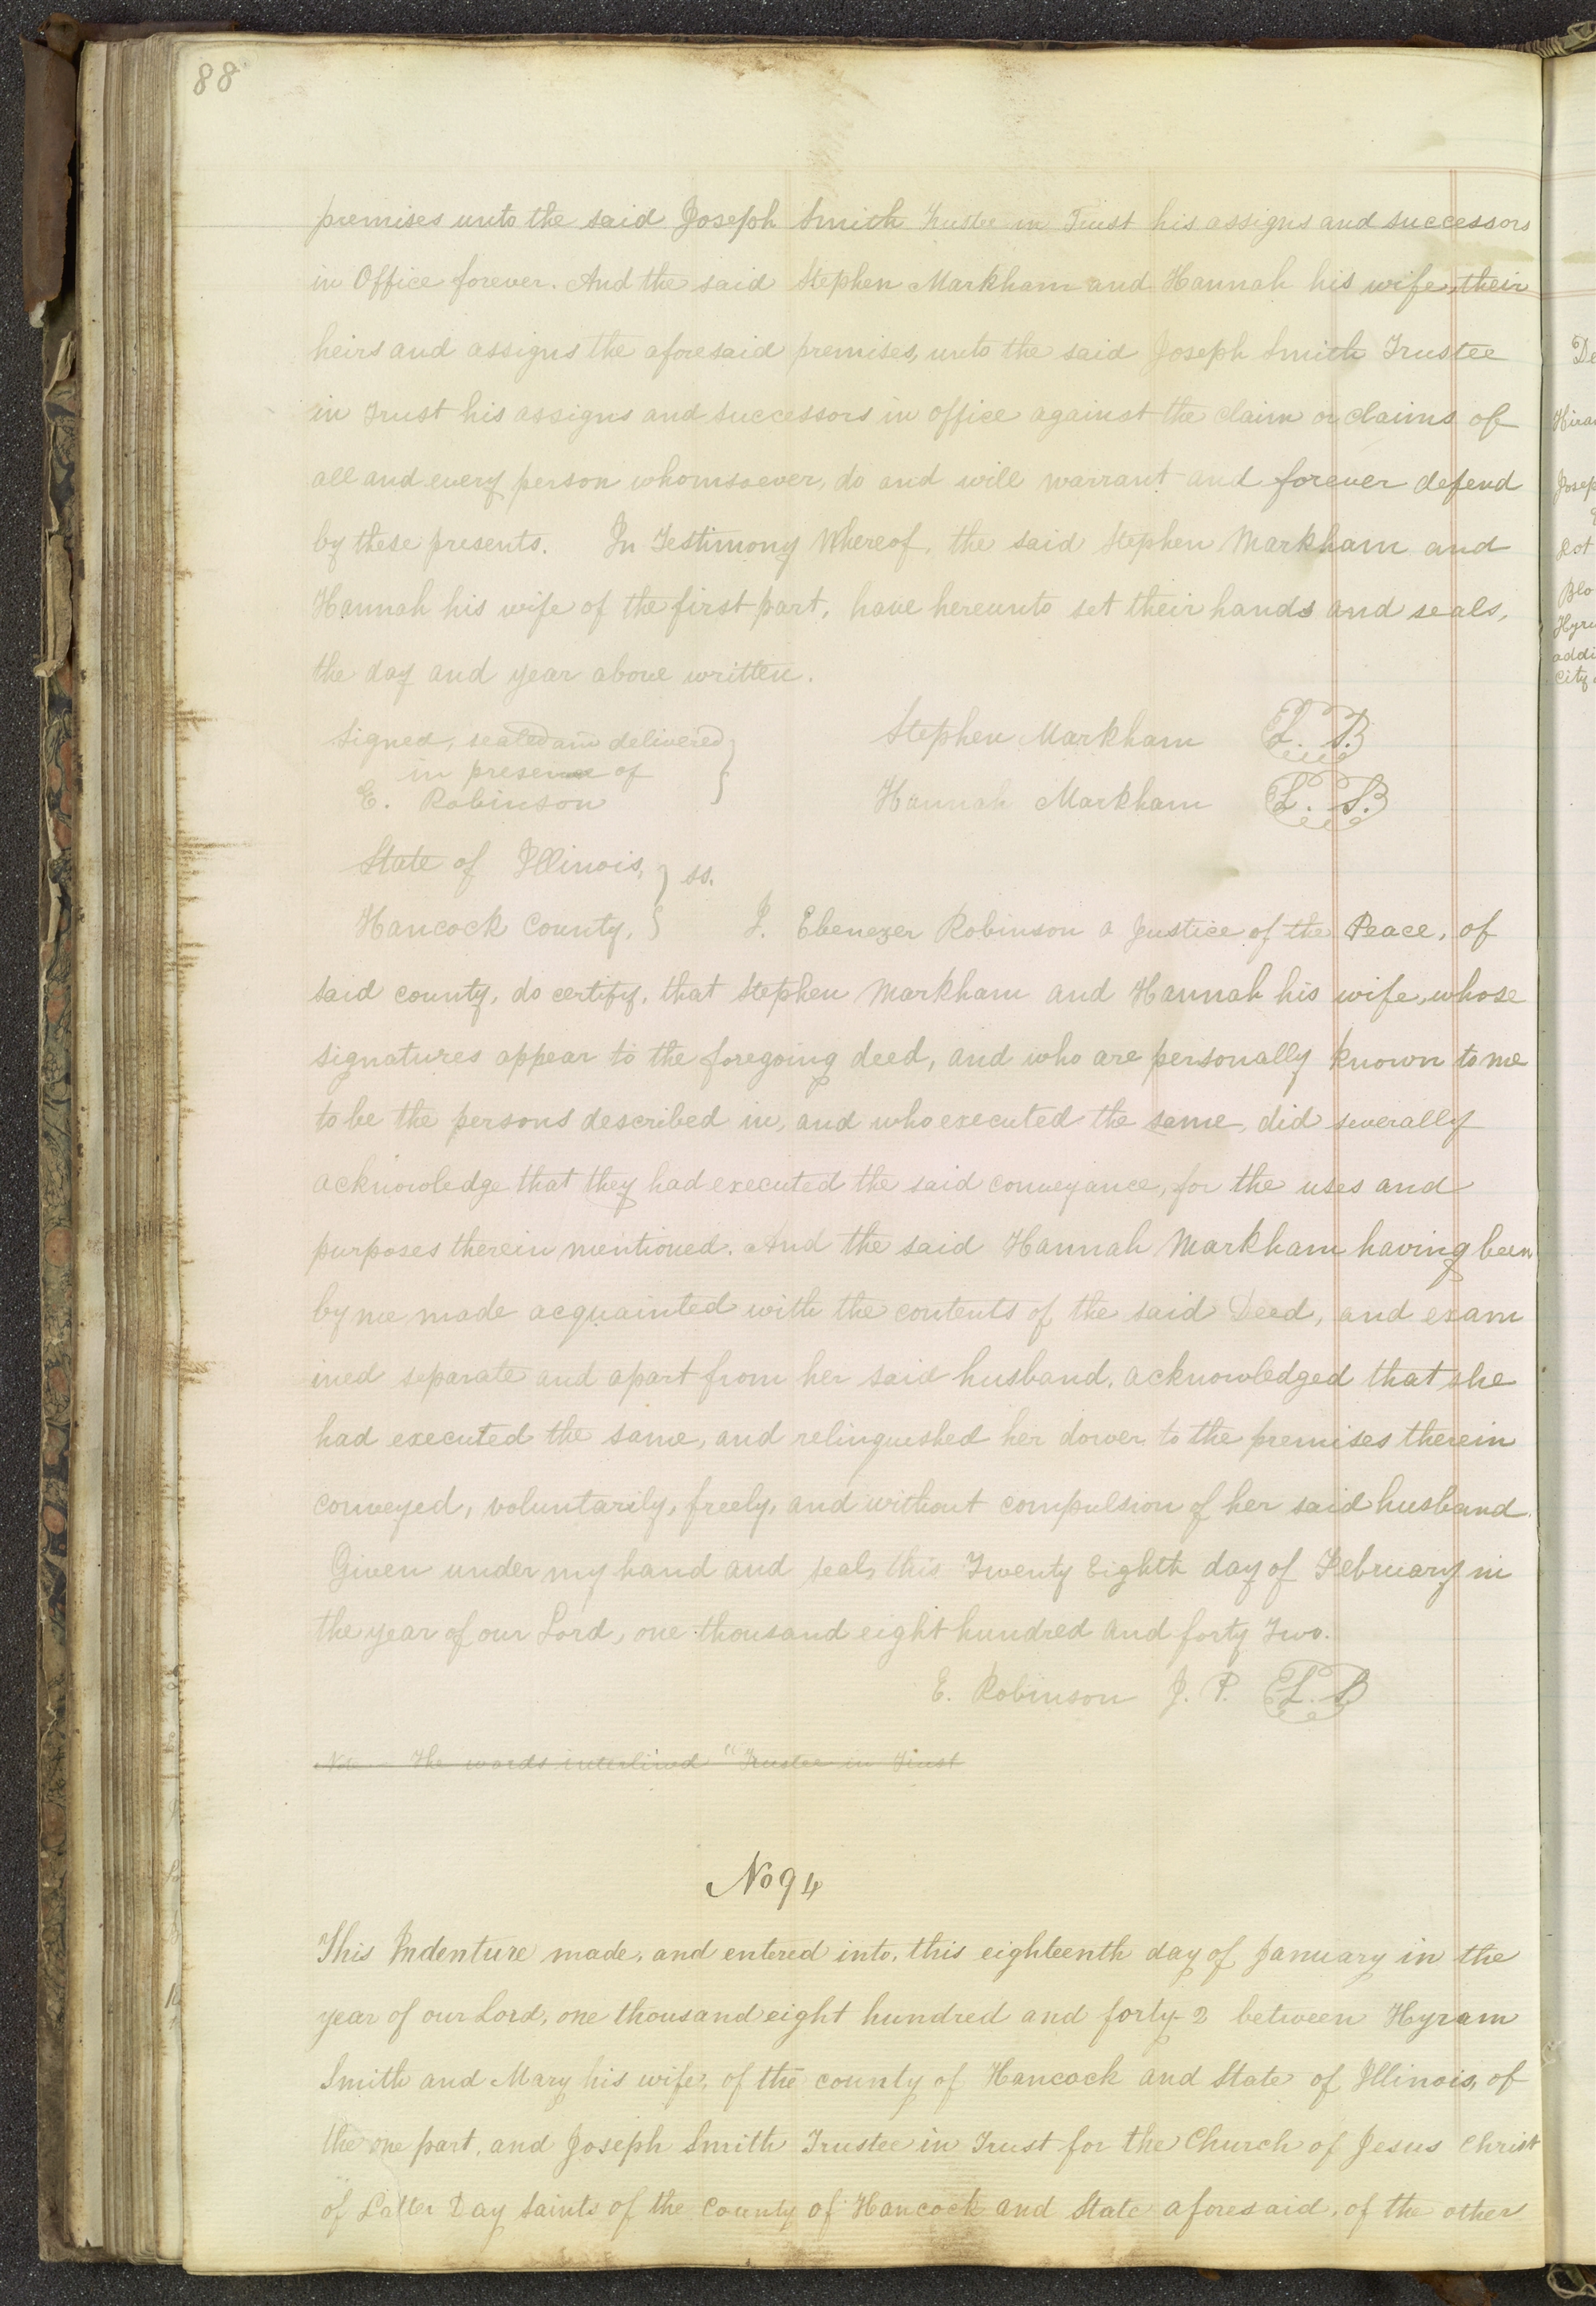 88
premises unto the said Joseph Smith Trustee in Trust his assigns and successors
in Office forever. And the said Stephen Markham and Hannah his wife, their
heirs and assigns the aforesaid premises, unto the said Joseph Smith Trustee
in Trust his assigns and successors in office against the claim or claims of
all and every person whomsoever, do and will warrant and forever defend
by these presents. In Testimony Whereof, the said Stephen Markham and
Hannah his wife of the first part, have hereunto set their hands and seals,
the day and year above written.
Signed, sealed and delivered
in presence of
E. Robinson
Stephen Markham L. S.
Hannah Markham L. S.
State of Illinois, } ss.
Hancock County, } I. Ebenezer Robinson a Justice of the Peace, of
said county, do certify, that Stephen Markham and Hannah his wife, whose
signatures appear to the foregoing deed, and who are personally known to me
to be the persons described in, and who executed the same, did severally
acknowledge that they had executed the said conveyance, for the uses and
purposes therein mentioned. And the said Hannah Markham having been
by me made acquainted with the contents of the said Deed, and exam
ined separate and apart from her said husband, acknowledged that she
had executed the same, and relinquished her dower to the premises therein
conveyed, voluntarily, freely, and without compulsion of her said husband.
Given under my hand and seal, this Twenty Eighth day of February in
the year of our Lord, one thousand eight hundred and forty Two.
E. Robinson J. P. L. S
Note - The words interlined "Trustee in Trust
No 94
This Indenture made, and entered into, this eighteenth day of January in the
year of our Lord, one thousand eight hundred and forty-2 between Hyram
Smith and Mary his wife, of the county of Hancock and State of Illinois, of
the one part, and Joseph Smith Trustee in Trust for the Church of Jesus Christ
of Latter Day Saints of the County of Hancock and State aforesaid, of the other